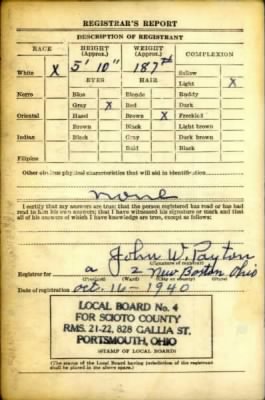 REGISTRAR'S REPORT
DESCRIPTION OF REGISTRANT
RACE HEIGHT (Approx.) WEIGHT (Approx.) COMPLEXION
White X 5' 10" 187 Sallow
EYES HAIR Light X
Negro Blue Blonde Ruddy
Gray X Red Dark
Oriental Hazel Brown X Freckled
Brown Black Light brown
Indian Black Gray Dark brown
Bald Black
Filipino
Other obvious physical characteristics that will aid in identification
none
I certify that my answers are true; that the person registered has read or has had
read to him his own answers; that I have witnessed his signature or mark and that
all of his answers of which I have knowledge are true, except as follows:
John W. Payton
(Signature of registrar)
Registrar for a 2 New Boston Ohio
(Precinct) (Ward) (City or county) (State)
Date of registration Oct. 16-1940
LOCAL BOARD No. 4
FOR SCIOTO COUNTY
RMS. 21-22, 828 GALLIA ST.
PORTSMOUTH, OHIO
(STAMP OF LOCAL BOARD)
(The stamp of the Local Board having jurisdiction of the registrant
shall be placed in the above space.)